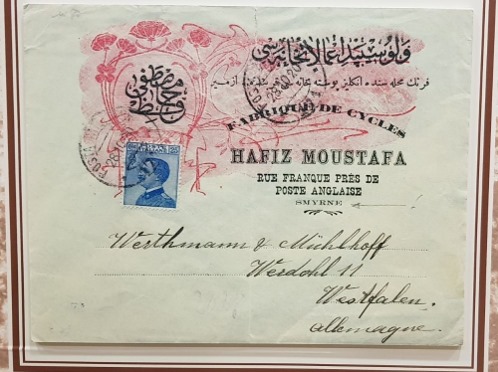 ولوسپيد اعمالاتخانه سی
فرنك محله سنده انكليز پوسته خانه سی قربنده ازمير
حافظ مصطفی
FABRIQUE DE CYCLES
HAFIZ MOUSTAFA
RUE FRANQUE PRÈS DE
POSTE ANGLAISE
SMYRNE
Werthmann & Mühlhoff
Werdohl 11
Westfalen.
Allemagne.